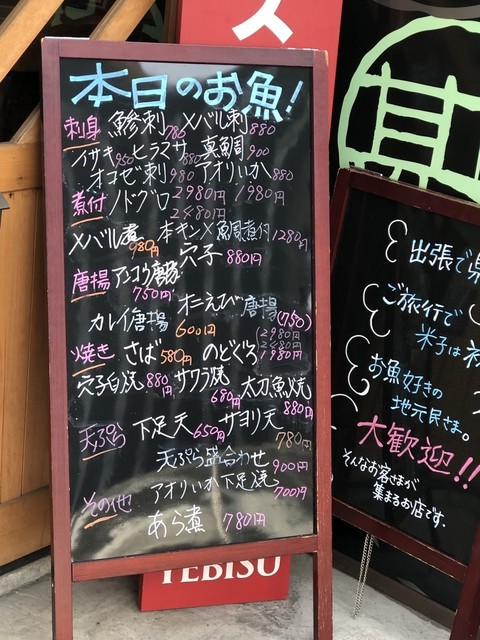 ス
本日のお魚!
刺身 鯵刺780 メバル刺880
イサキ950 ヒラマサ880 真鯛900
オコゼ刺980 アオリいか880
煮付 ノドグロ 2980円 1980円
2480円
メバル煮980円 本キンメ 鯛煮付1280円
穴子880円
唐揚 アコウ唐揚750円
オニえび唐揚(750)
カレイ唐揚600円
焼き さば580円 のどぐろ(2980円
2480円
1980円
穴子白焼880円 サワラ焼680円 太刀魚焼880円
天ぷら 下足天650円 サヨリ天780円
天ぷら盛合わせ900円
その他 アオリいか下足焼700円
あら煮 780円
YEBISU
出張で
ご旅行で
米子は初
お魚好きの
地元民さま。
大歓迎!!
そんなお客さまが
集まるお店です。